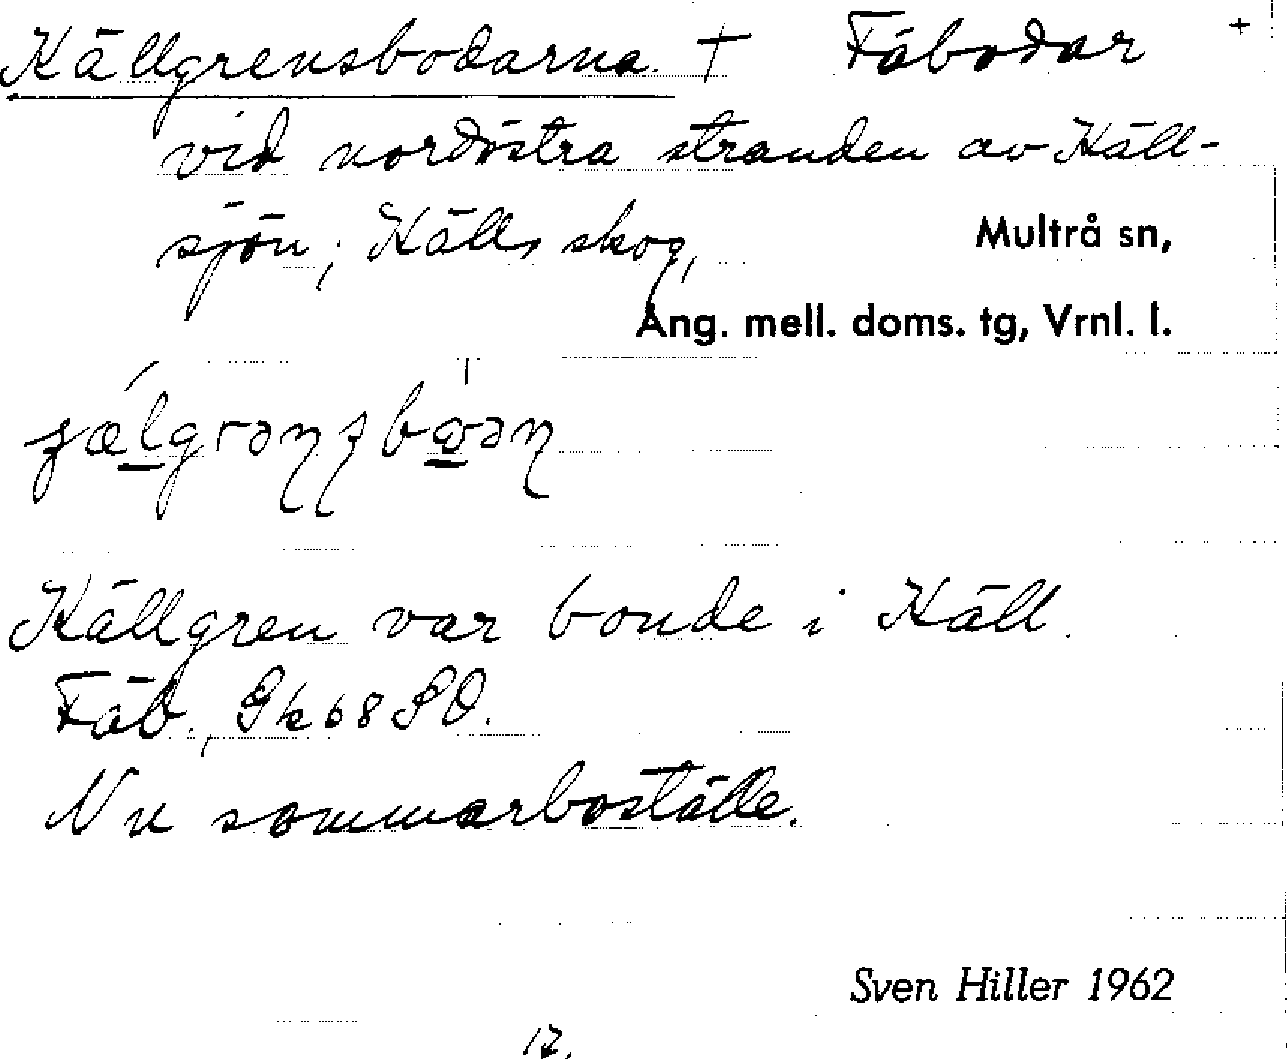 Källgrensbodarna. † Fäbodar +
vid nordöstra stranden av Käll-
sjön; Källs skog, Multrå sn,
Ång. mell. doms. tg, Vrnl. l.
Källgren var bonde i Käll.
Fäb., Gk 68 SO.
Nu sommarboställe.
Sven Hiller 1962
12.